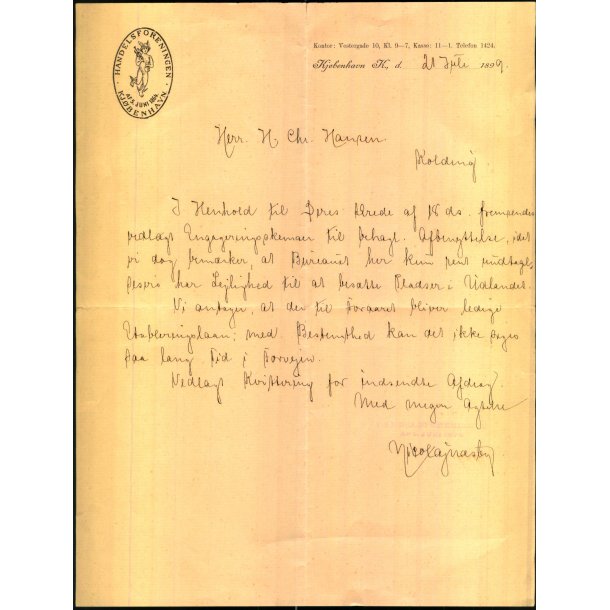 HANDELSFORENINGEN
KJØBENHAVN
AF 2. JUNI 1864.
Kontor: Vestergade 10, Kl. 9—7, Kasse: 11—1. Telefon 1424.
Kjøbenhavn K., d. 21 Juli 1899.
Herr. H. Chr. Hansen.
Kolding.
I Henhold til Deres Ærede af 18 ds. fremsendes
vedlagt Engageringsskemaer til behagl. Afbenyttelse, idet
vi dog bemærker, at Bureauet her kun rent undtagel-
sesvis har Lejlighed til at besætte Pladser i Udlandet.
Vi antager, at der til Foraaret bliver ledige
Etableringslaan; med Bestemthed kan det ikke siges
saa lang Tid i Forvejen.
Vedlagt Kvittering for indsendte Afdrag.
Med megen Agtelse